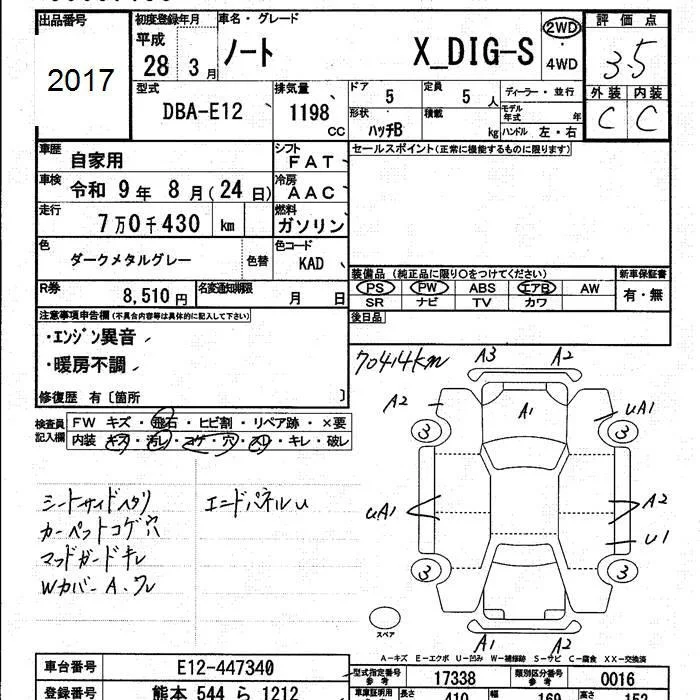 出品番号 初度登録年月 車名・グレード 評価点
2017
平成 28 3月 ノート X_DIG-S 2WD・4WD 3.5
外装 内装
C C
型式 DBA-E12 排気量 1198 CC ドア 5 定員 5 人 ディーラー・並行
形状 ハッチB 積載 kg モデル年式 年
ハンドル 左・右
車歴 自家用 シフト FAT セールスポイント(正常に機能するものに限ります)
車検 令和 9年 8月(24日) 冷房 AAC
走行 7万0千430 km 燃料 ガソリン
色 ダークメタルグレー 色替 色コード KAD
装備品 (純正品に限り○をつけてください) 新車保証書
PS PW ABS エアB AW 有・無
SR ナビ TV カワ
R券 8,510円 名変通知期限 月 日
後日品
注意事項申告欄(不具合内容等は具体的に記入して下さい)
・エンジン異音
・暖房不調
修復歴 有〔箇所 〕
70414km A3 A2
A2 A1 uA1
3 3
uA1 A2
U1
3 3
スペア
A1 A2
検査員記入欄 FW キズ・飛石・ヒビ割・リペア跡・×要
内装 キズ・汚レ・コゲ・穴・スレ・キレ・破レ
シートサイドヘタリ エンドパネルu
カーペットコゲ穴
マッドガードキレ
Wカバー A.ワレ
A-キズ E-エクボ U-凹み W-補修跡 S-サビ C-腐食 XX-交換済
車台番号 E12-447340 型式指定番号 参考 17338 類別区分番号 参考 0016
登録番号 熊本 544 ら 1212 車庫証明用 長さ 410 幅 169 高さ 152